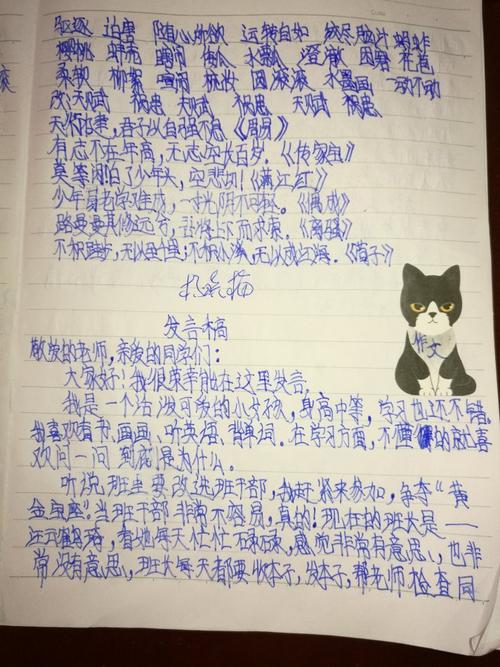 驱逐 泊岸 随心所欲 运转自如 绞尽脑汁
樱桃 蚌壳 水墨 澄澈 困窘 花苞
柔软 柳絮 梳妆 圆滚滚 水墨画 一动不动
天赋 祸患 天赋 祸患 天赋 祸患
天行健,君子以自强不息《周易》
有志不在年高,无志空长百岁。《传家宝》
莫等闲白了少年头,空悲切!《满江红》
少年易老学难成,一寸光阴不可轻。《偶成》
路曼曼其修远兮,吾将上下而求索。《离骚》
不积跬步,无以至千里;不积小流,无以成江海。《荀子》
发言稿
作文
敬爱的老师,亲爱的同学们:
大家好!我很荣幸能在这里发言。
我是一个活泼可爱的小女孩,身高中等,学习也还不错。
我喜欢看书、画画、听英语、背单词。在学习方面,不懂的就喜
欢问一问到底是为什么。
听说班里要改选班干部,我赶紧来参加,争夺“黄
金宝座”当班干部非常不容易,真的!现在的班长是——
汪鹤琦,看她每天忙忙碌碌,感觉非常有意思,也非
常没有意思,班长每天都要收本子,发本子,帮老师检查同